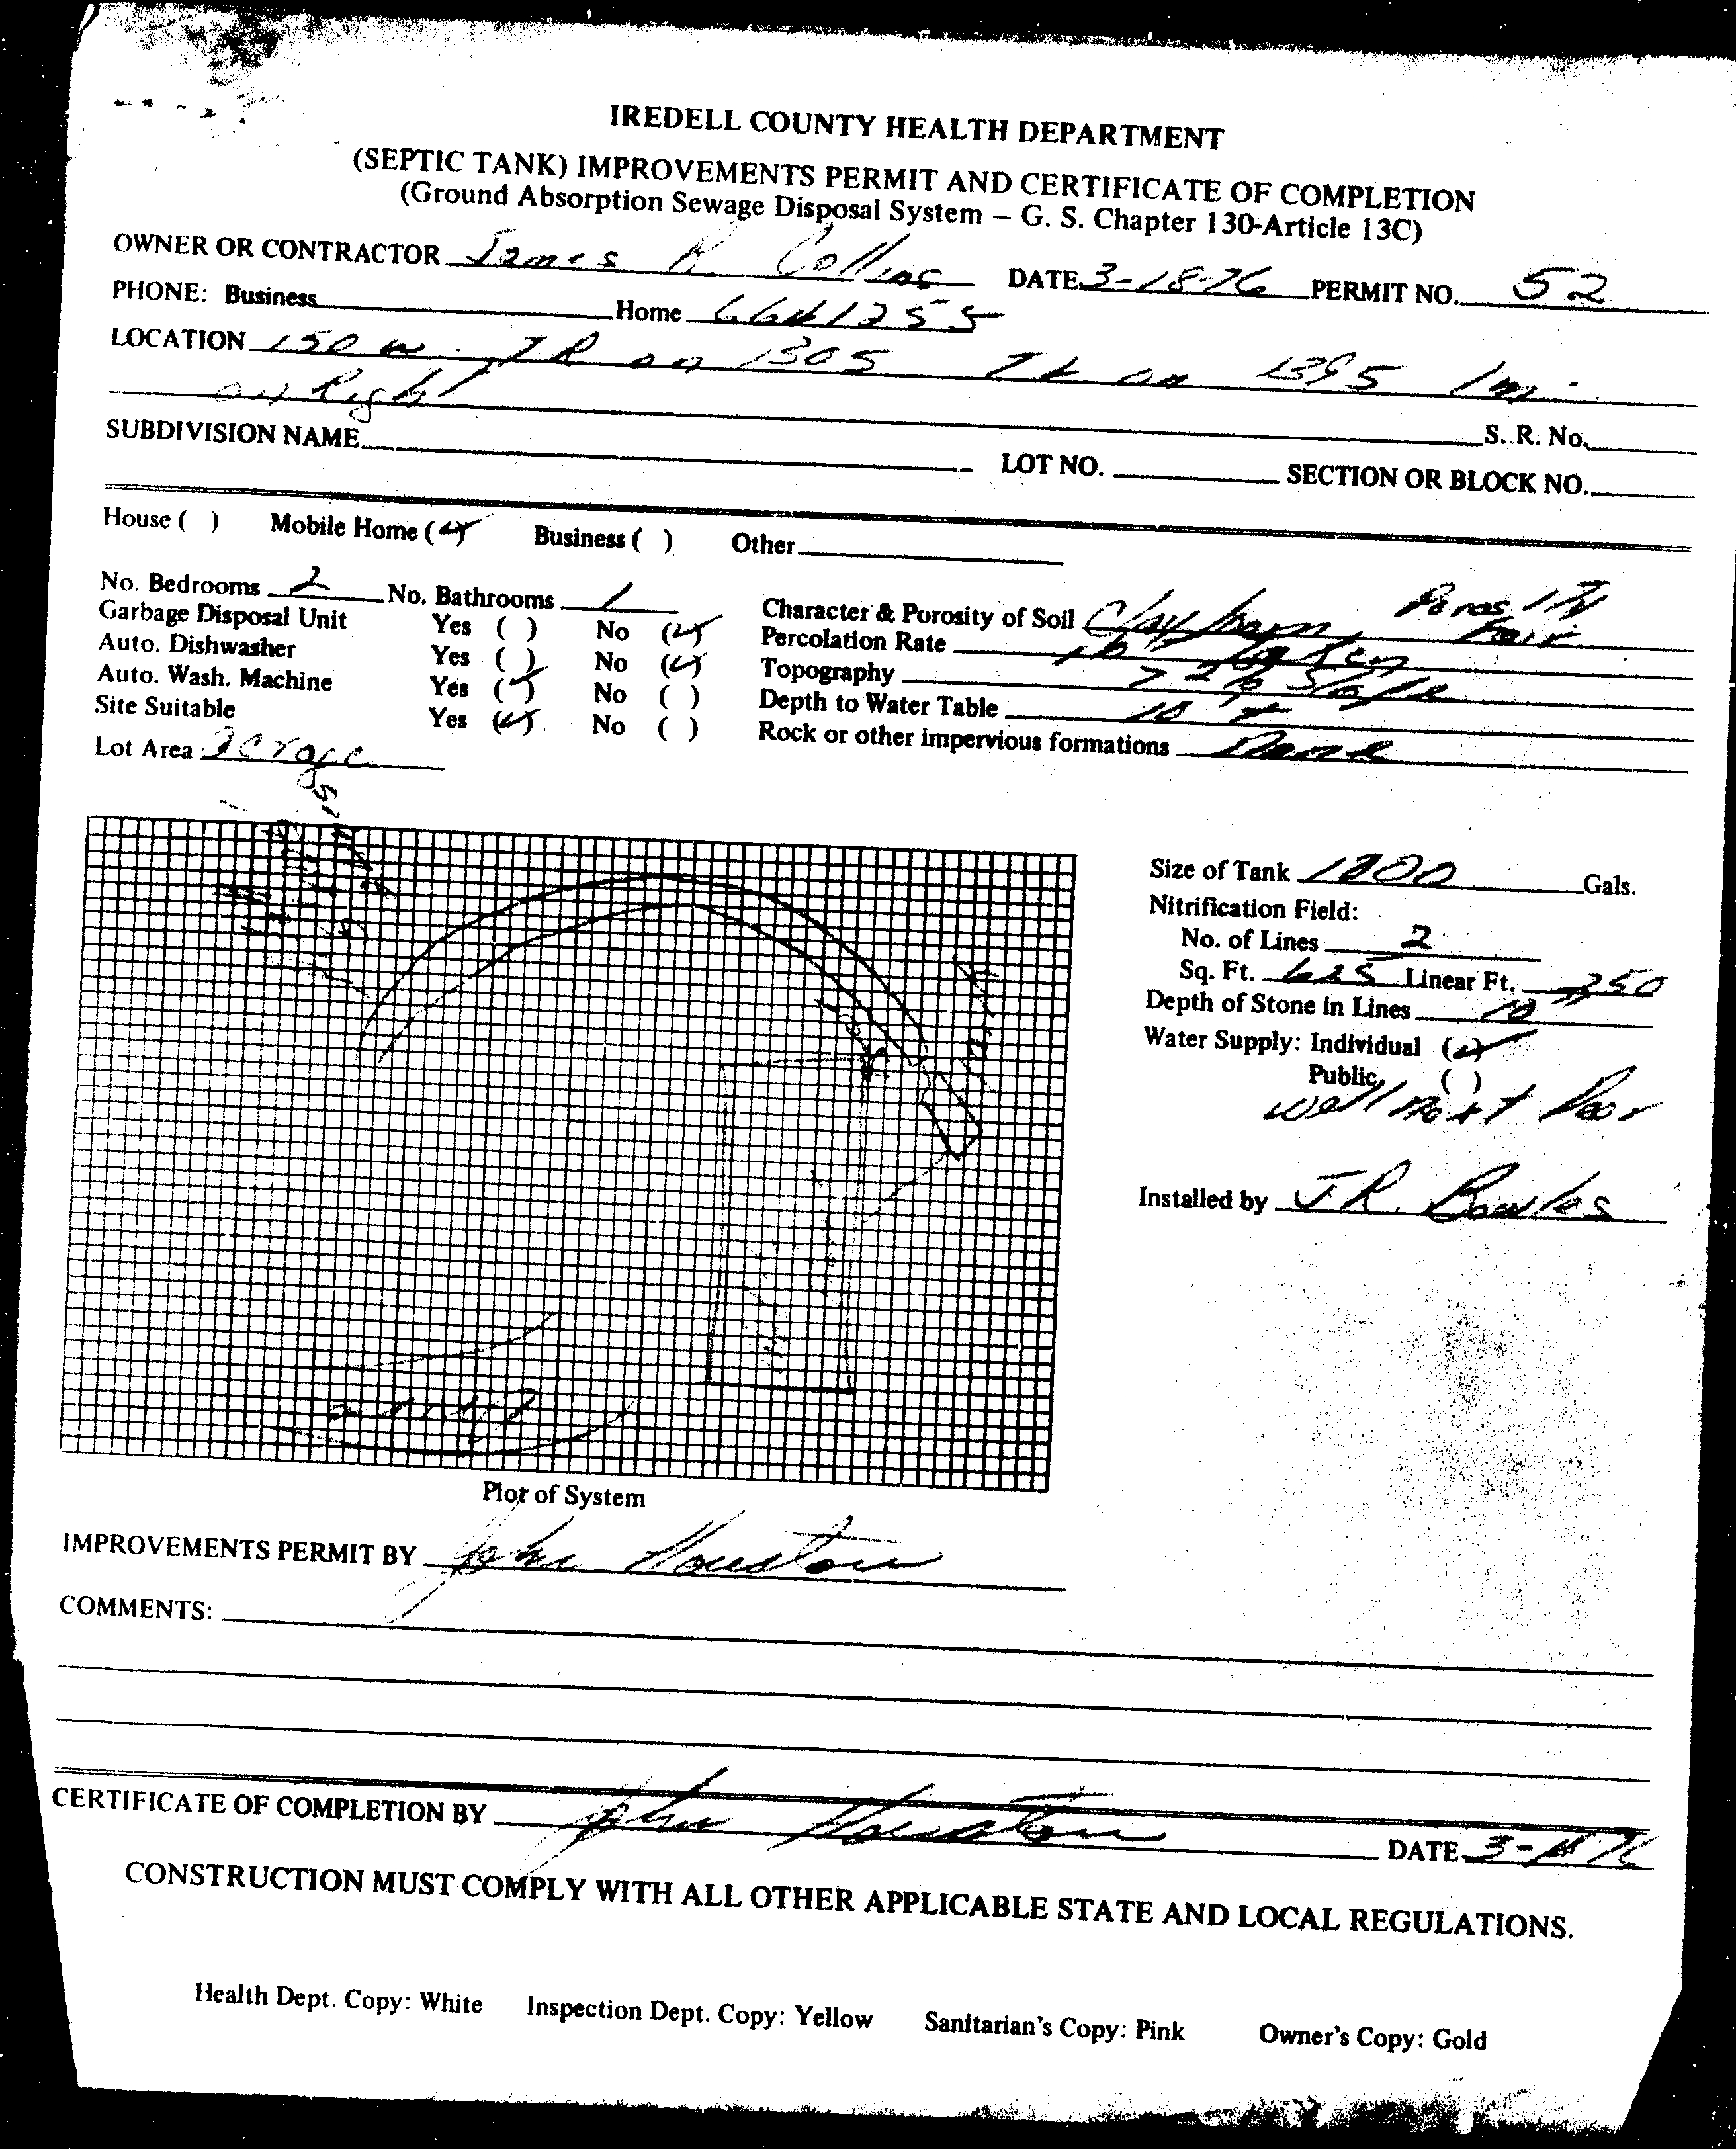 IREDELL COUNTY HEALTH DEPARTMENT
(SEPTIC TANK) IMPROVEMENTS PERMIT AND CERTIFICATE OF COMPLETION
(Ground Absorption Sewage Disposal System – G. S. Chapter 130-Article 13C)
OWNER OR CONTRACTOR James R. Collins DATE 3-18-76 PERMIT NO. 52
PHONE: Business Home 6641255
LOCATION 150 w. TR on 1305 on 1395 1 mi.
on Right
S. R. No.
SUBDIVISION NAME LOT NO. SECTION OR BLOCK NO.
House ( ) Mobile Home (✓) Business ( ) Other
No. Bedrooms 2 No. Bathrooms 1 Character & Porosity of Soil Clay loam, Porosity Fair
Garbage Disposal Unit Yes ( ) No (✓) Percolation Rate
Auto. Dishwasher Yes ( ) No (✓) Topography Slope
Auto. Wash. Machine Yes (✓) No ( ) Depth to Water Table 10 +
Site Suitable Yes (✓) No ( ) Rock or other impervious formations None
Lot Area acroge
Size of Tank 1000 Gals.
Nitrification Field:
No. of Lines 2
Sq. Ft. 625 Linear Ft. 250
Depth of Stone in Lines 10
Water Supply: Individual (✓)
Public ( )
well next Door
Installed by J.R. Bowles
Plot of System
IMPROVEMENTS PERMIT BY John Houston
COMMENTS:
CERTIFICATE OF COMPLETION BY John Houston DATE 3-18 76
CONSTRUCTION MUST COMPLY WITH ALL OTHER APPLICABLE STATE AND LOCAL REGULATIONS.
Health Dept. Copy: White Inspection Dept. Copy: Yellow Sanitarian's Copy: Pink Owner's Copy: Gold